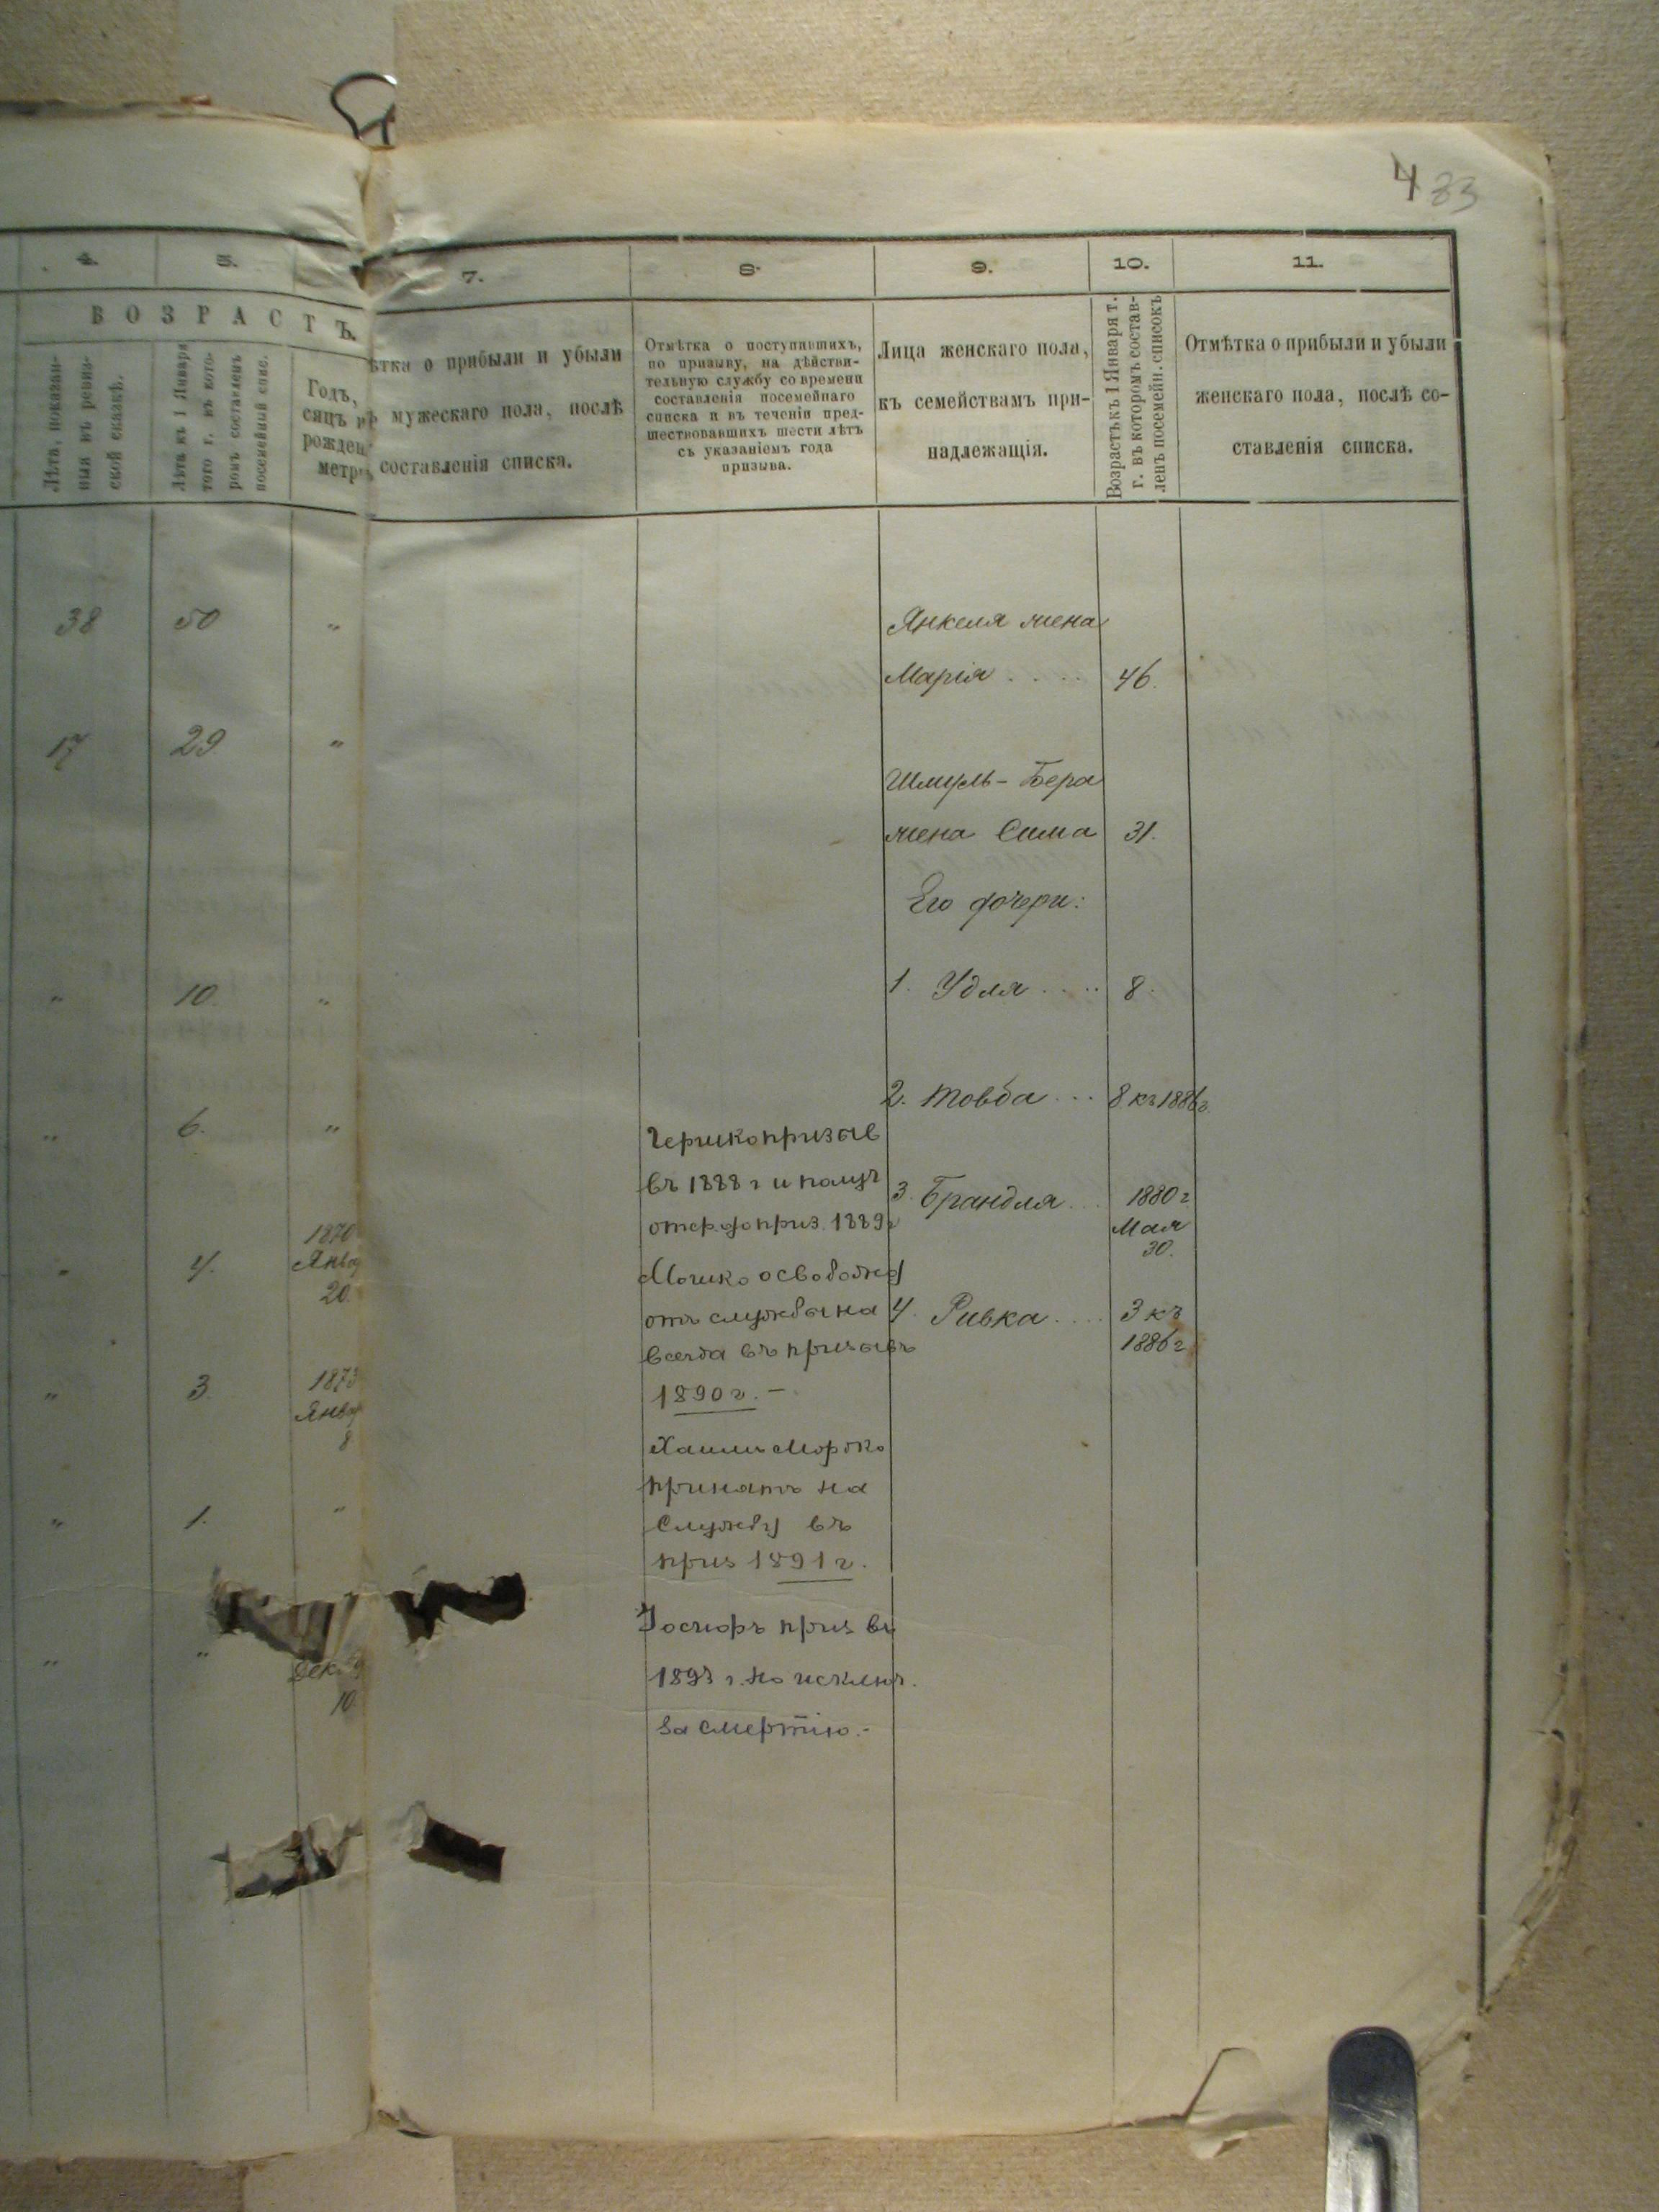 4 33
4.
5.
7.
8.
9.
10.
11.
ВОЗРАСТЪ.
Лѣта, показан-
ныя въ ревиз-
ской сказкѣ.
Лѣта къ 1 Января
того г. въ кото-
ромъ составленъ
посемейный спис.
Годъ,
сяцъ и
рожден
метри
ѣтка о прибыли и убыли
мужескаго пола, послѣ
составленія списка.
Отмѣтка о поступившихъ,
по призыву, на дѣйстви-
тельную службу со времени
составленія посемейнаго
списка и въ теченіи пред-
шествовавшихъ шести лѣтъ
съ указаніемъ года
призыва.
Лица женскаго пола,
къ семействамъ при-
надлежащія.
Возрастъ къ 1 Января т.
г. въ которомъ состав-
ленъ посемейн. списокъ
Отмѣтка о прибыли и убыли
женскаго пола, послѣ со-
ставленія списка.
38 50 "
Янкеля жена
Марія . . . . 46.
17 29 "
Шмуль-Бера
жена Сима 31.
Его дочери:
" 10. "
1. Удля . . . . 8.
" 6. "
2. Товба . . . 8 къ 1886г.
3. Брандля . . . 1880 г
Мая
30.
" 4. 1870
Янва
20.
4. Ривка . . . . 3 къ
1886 г
" 3. 1873
Янва
8
" 1. "
" " Дек.
10
Гершко призыв
въ 1888 г и получ
отср. до приз. 1889г
Мошко освобожд
отъ службы на
всегда въ призывъ
1890 г. –
Хаимъ Мордко
принятъ на
службу въ
приз 1891 г.
Іосифъ приз въ
1893 г. но исключ.
за смертію.-